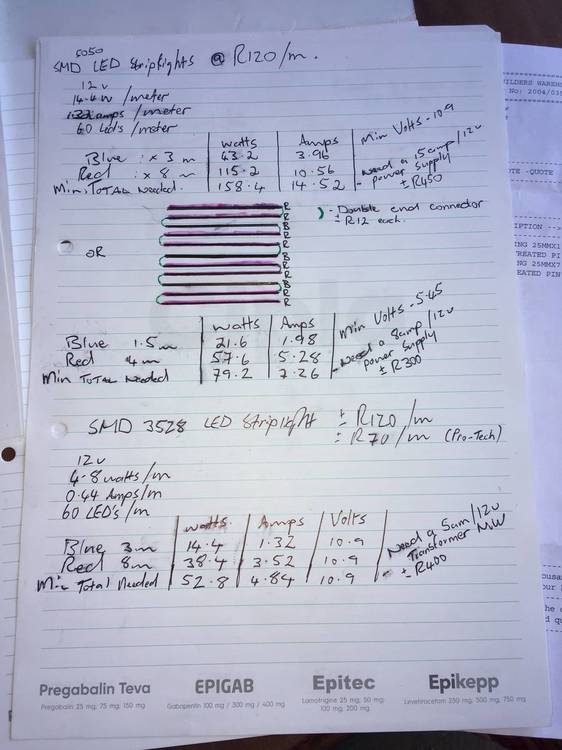 5050
SMD LED Striplights @ R120/m.
12v
14.4w /meter
1.32 amps /meter
60 Led's /meter
watts Amps Min Volts - 10.9
Blue : x 3 m 43.2 3.96
Red : x 8 m 115.2 10.56
Min. TOTAL Needed. 158.4 14.52
- Need a 15amp/12v
power supply
± R450
R
R
B
R
R
B
R
R
B
R
R
OR
) - Double end connector
± R12 each.
watts Amps Min Volts - 5.45
Blue 1.5m 21.6 1.98
Red 4m 57.6 5.28
Min TOTAL Needed 79.2 7.26
- Need a 8amp/12v
power supply
± R300
SMD 3528 LED Striplight ± R120 /m
± R70 /m (Pro-Tech)
12v
4.8 watts /m
0.44 Amps/m
60 LED's /m
watts. Amps Volts
Blue 3m 14.4 1.32 10.9
Red 8m 38.4 3.52 10.9
Min Total Needed 52.8 4.84 10.9
- Need a 5am/12v
Transformer MW
± R400
Pregabalin Teva
Pregabalin 25 mg; 75 mg; 150 mg
EPIGAB
Gabapentin 100 mg / 300 mg / 400 mg
Epitec
Lamotrigine 25 mg; 50 mg;
100 mg; 200 mg.
Epikepp
Levetiracetam 250 mg, 500 mg, 750 mg
UILDERS WAREH
No: 2004/035
OTE -QUOTE
IPTION -->
ING 25MMX1
REATED PI
NG 25MMX7
EATED PIN